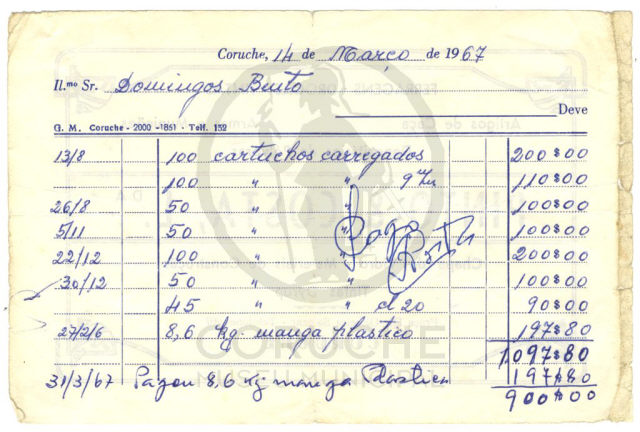 Coruche, 14 de Março de 1967
Il.mo Sr. Domingos Brito
Deve
G. M. Coruche - 2000 - 1851 - Telf. 152
13/8 100 cartuchos carregados 200$00
100 " " 9 m/m 110$00
26/8 50 " " 100$00
5/11 50 " " 100$00
22/12 100 " " 200$00
30/12 50 " " 100$00
45 " " cl 20 90$00
Pago
27/2/6 8,6 kg. manga plastico 197$80
1.097$80
31/3/67 Pagou 8,6 Kg manga Plastica 197$80
900$00
CORUCHE
MUSEU MUNICIPAL